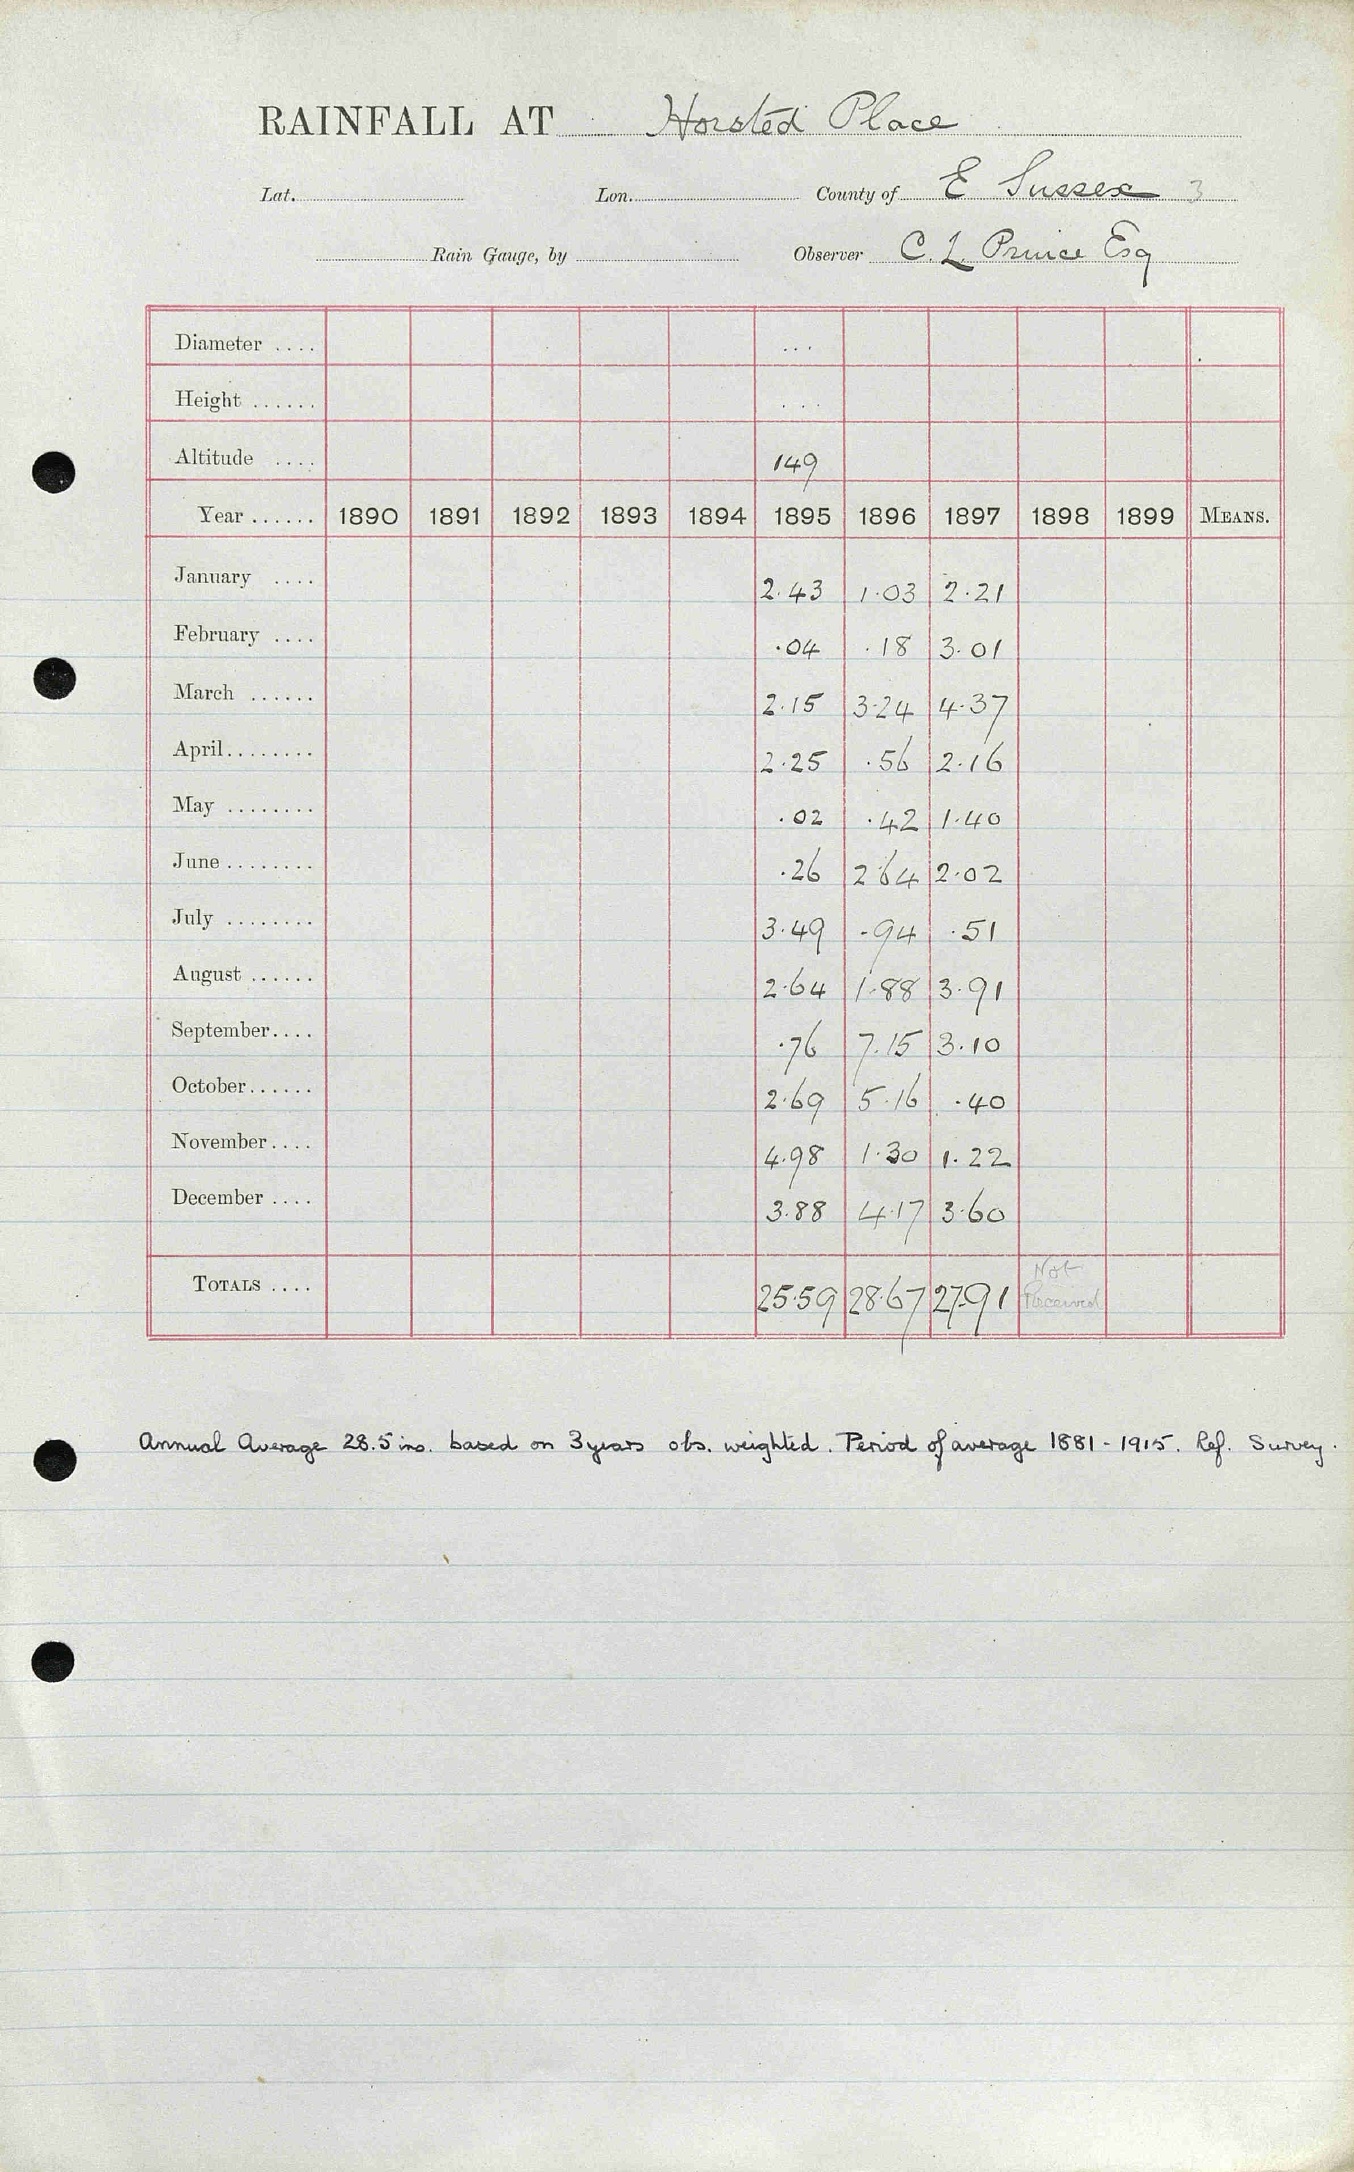 RAINFALL AT Horsted Place
Lat. Lon. County of E Sussex 3
Rain Gauge, by Observer C. L. Prince Esq
Diameter .... ...
Height ...... ...
Altitude .... 149
Year ...... 1890 1891 1892 1893 1894 1895 1896 1897 1898 1899 MEANS.
January .... 2.43 1.03 2.21
February .... .04 .18 3.01
March ...... 2.15 3.24 4.37
April........ 2.25 .56 2.16
May ........ .02 .42 1.40
June ........ .26 2.64 2.02
July ........ 3.49 .94 .51
August ...... 2.64 1.88 3.91
September.... .76 7.15 3.10
October...... 2.69 5.16 .40
November.... 4.98 1.30 1.22
December .... 3.88 4.17 3.60
TOTALS .... 25.59 28.67 27.91 Not Received
Annual Average 28.5 ins. based on 3 years obs. weighted. Period of average 1881 - 1915. Ref. Survey.